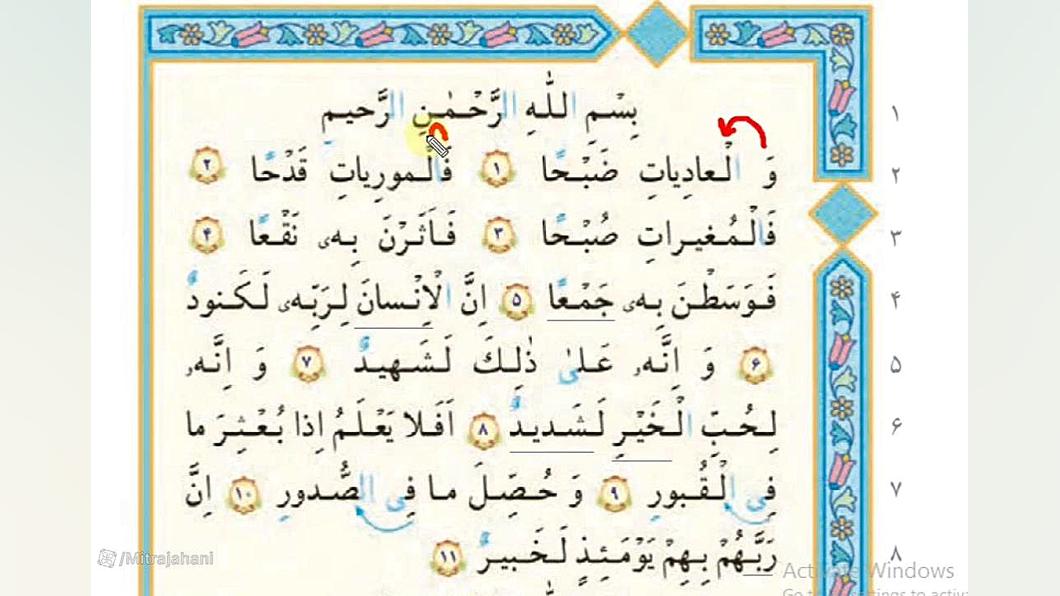 بِسْمِ اللهِ الرَّحْمٰنِ الرَّحيمِ
۱
وَ الْعادِياتِ ضَبْحًا ۱ فَالْمورِياتِ قَدْحًا ۲
۲
فَالْمُغيراتِ صُبْحًا ۳ فَاَثَرْنَ بِهٖ نَقْعًا ۴
۳
فَوَسَطْنَ بِهٖ جَمْعًا ۵ اِنَّ الْاِنْسانَ لِرَبِّهٖ لَكَنودٌ
۴
۶ وَ اِنَّهٗ عَلىٰ ذٰلِكَ لَشَهيدٌ ۷ وَ اِنَّهٗ
۵
لِحُبِّ الْخَيْرِ لَشَديدٌ ۸ اَفَلا يَعْلَمُ اِذا بُعْثِرَ ما
۶
فِى الْقُبورِ ۹ وَ حُصِّلَ ما فِى الصُّدورِ ۱۰ اِنَّ
۷
رَبَّهُمْ بِهِمْ يَوْمَئِذٍ لَخَبيرٌ ۱۱
۸
/Mitrajahani
Activate Windows